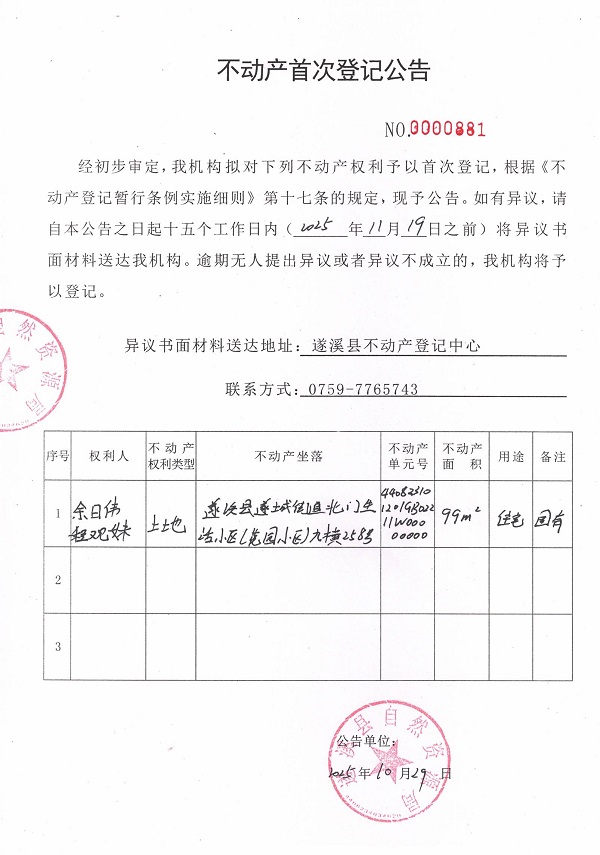 不动产首次登记公告
NO.0000881
经初步审定，我机构拟对下列不动产权利予以首次登记，根据《不
动产登记暂行条例实施细则》第十七条的规定，现予公告。如有异议，请
自本公告之日起十五个工作日内（2025年11月19日之前）将异议书
面材料送达我机构。逾期无人提出异议或者异议不成立的，我机构将予
以登记。
异议书面材料送达地址：遂溪县不动产登记中心
联系方式：0759-7765743
序号 权利人 不动产权利类型 不动产坐落 不动产单元号 不动产面积 用途 备注
1 余日伟 土地 遂溪县遂城街道北门 44082310 99m² 住宅 国有
小区 九横258号 1201GB022
11W000
00000
2
3
然资源局
遂溪县自然资源局
公告单位：
2025年10月29日